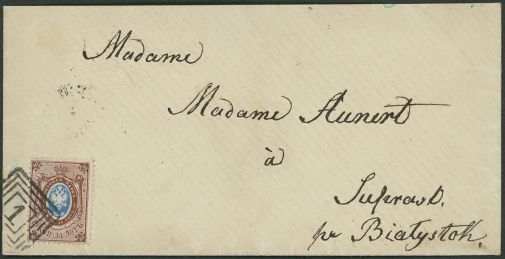 Madame
Madame Aunert
à
Suprasl.
pr Białystok
1
ЗА ЛОТЪ